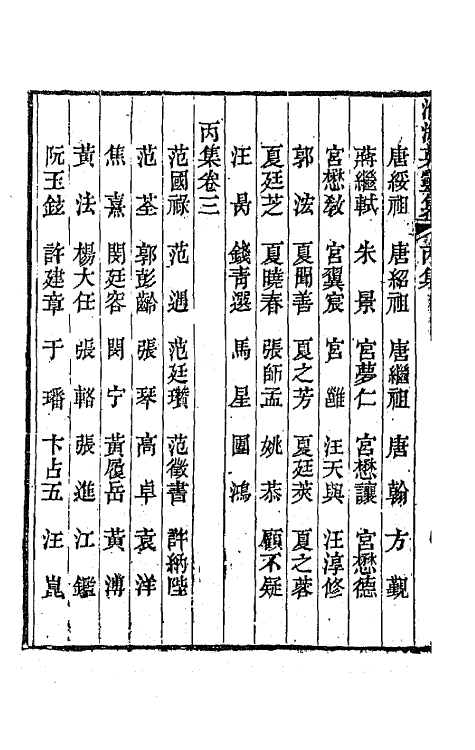 淮海英靈集 丙集
唐綏祖 唐紹祖 唐繼祖 唐翰 方覲
蔣繼軾 朱景 宮夢仁 宮懋讓 宮懋德
宮懋敎 宮翼宸 宮雝 汪天與 汪淳修
郭法 夏聞善 夏之芳 夏廷萊 夏之蓉
夏廷芝 夏曉春 張師孟 姚恭 顧不疑
汪昺 錢青選 馬星 團鴻
丙集卷三
范國祿 范遇 范廷瓚 范徵書 許納陛
范荃 郭彭齡 張琴 高卓 袁洋
焦熹 閔廷容 閔宁 黃履岳 黃溥
黃法 楊大任 張輅 張進 江鑑
阮玉鉉 許建章 于璠 卞占五 汪崑